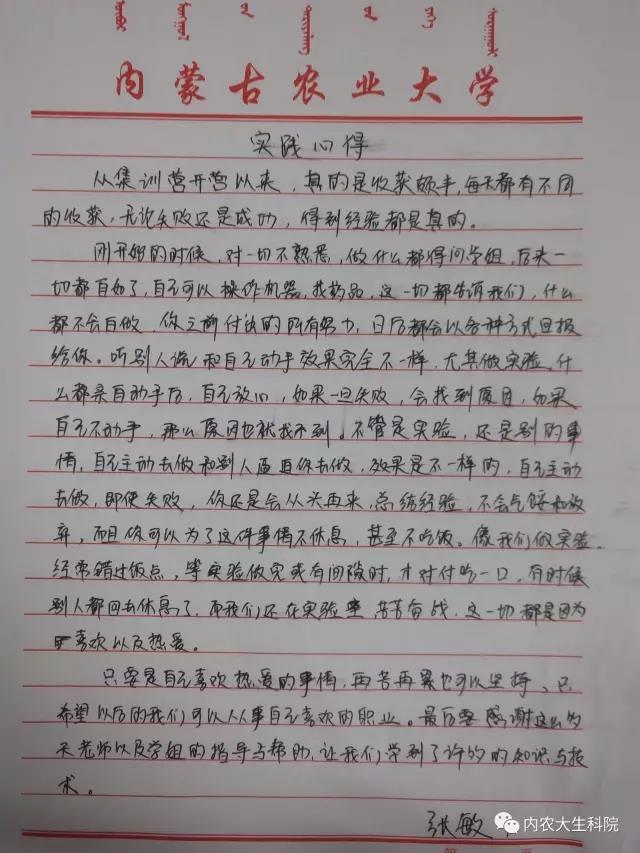 内蒙古农业大学
实践心得
从集训营开营以来，真的是收获颇丰，每天都有不同
的收获，无论失败还是成功，得到经验都是真的。
刚开始的时候，对一切不熟悉，做什么都得问学姐，后来一
切都自如了，自己可以操作机器，找药品，这一切都告诉我们，什么
都不会白做，你之前付出的所有努力，日后都会以各种方式回报
给你。听别人说和自己动手效果完全不一样，尤其做实验，什
么都亲自动手后，自己放心，如果一旦失败，会找到原因，如果
自己不动手，那么原因也就找不到。不管是实验，还是别的事
情，自己主动去做和别人逼迫你去做，效果是不一样的，自己主动
去做，即使失败，你还是会从头再来，总结经验，不会气馁和放
弃，而且你可以为了这件事情不休息，甚至不吃饭。像我们做实验，
经常错过饭点，等实验做完或有间隙时，才对付吃一口，有时候
别人都回去休息了，而我们还在实验室，苦苦奋战，这一切都是因为
喜欢以及热爱。
只要是自己喜欢热爱的事情，再苦再累也可以坚持、只
希望以后的我们可以从事自己喜欢的职业。最后要感谢这么多
天老师以及学姐的指导与帮助，让我们学到了许多的知识与技
术。
张敏
内农大生科院